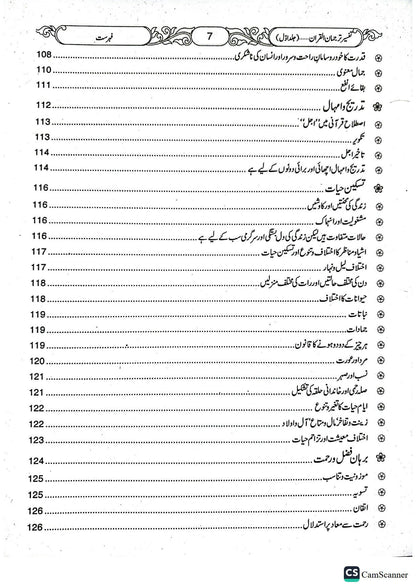 تفسیر ترجمان القرآن — (جلد اوّل) 7 فہرست
قدرت کا خود رو سامانِ راحت و سرور اور انسان کی ناشکری 108
جمالِ معنوی 110
بقائے انفع 111
تدریج و امہال 112
اصطلاحِ قرآنی میں "اجل" 113
تکویر 113
تاخیرِ اجل 114
تدریج و امہال اچھائی اور برائی دونوں کے لیے ہے 114
تسکینِ حیات 116
زندگی کی محنتیں اور کاوشیں 116
مشغولیت اور انہماک 116
حالات متفاوت ہیں لیکن زندگی کی دل بستگی اور سرگرمی سب کے لیے ہے 116
اشیا و مناظر کا اختلاف و تنوع اور تسکینِ حیات 117
اختلافِ لیل و نہار 117
دن کی مختلف حالتیں اور رات کی مختلف منزلیں 118
حیوانات کا اختلاف 118
نباتات 119
جمادات 119
ہر چیز کے دو دو ہونے کا قانون 119
مرد اور عورت 120
نسب اور صہر 121
صلہ رحمی اور خاندانی حلقہ کی تشکیل 121
ایامِ حیات کا تغیر و تنوع 122
زینت و تفاخر مال و متاع آل و اولاد 122
اختلافِ معیشت اور تزاحمِ حیات 123
برہانِ فضل و رحمت 124
موزونیت و تناسب 125
تسویہ 125
اتقان 126
رحمت سے معاد پر استدلال 126
CS CamScanner